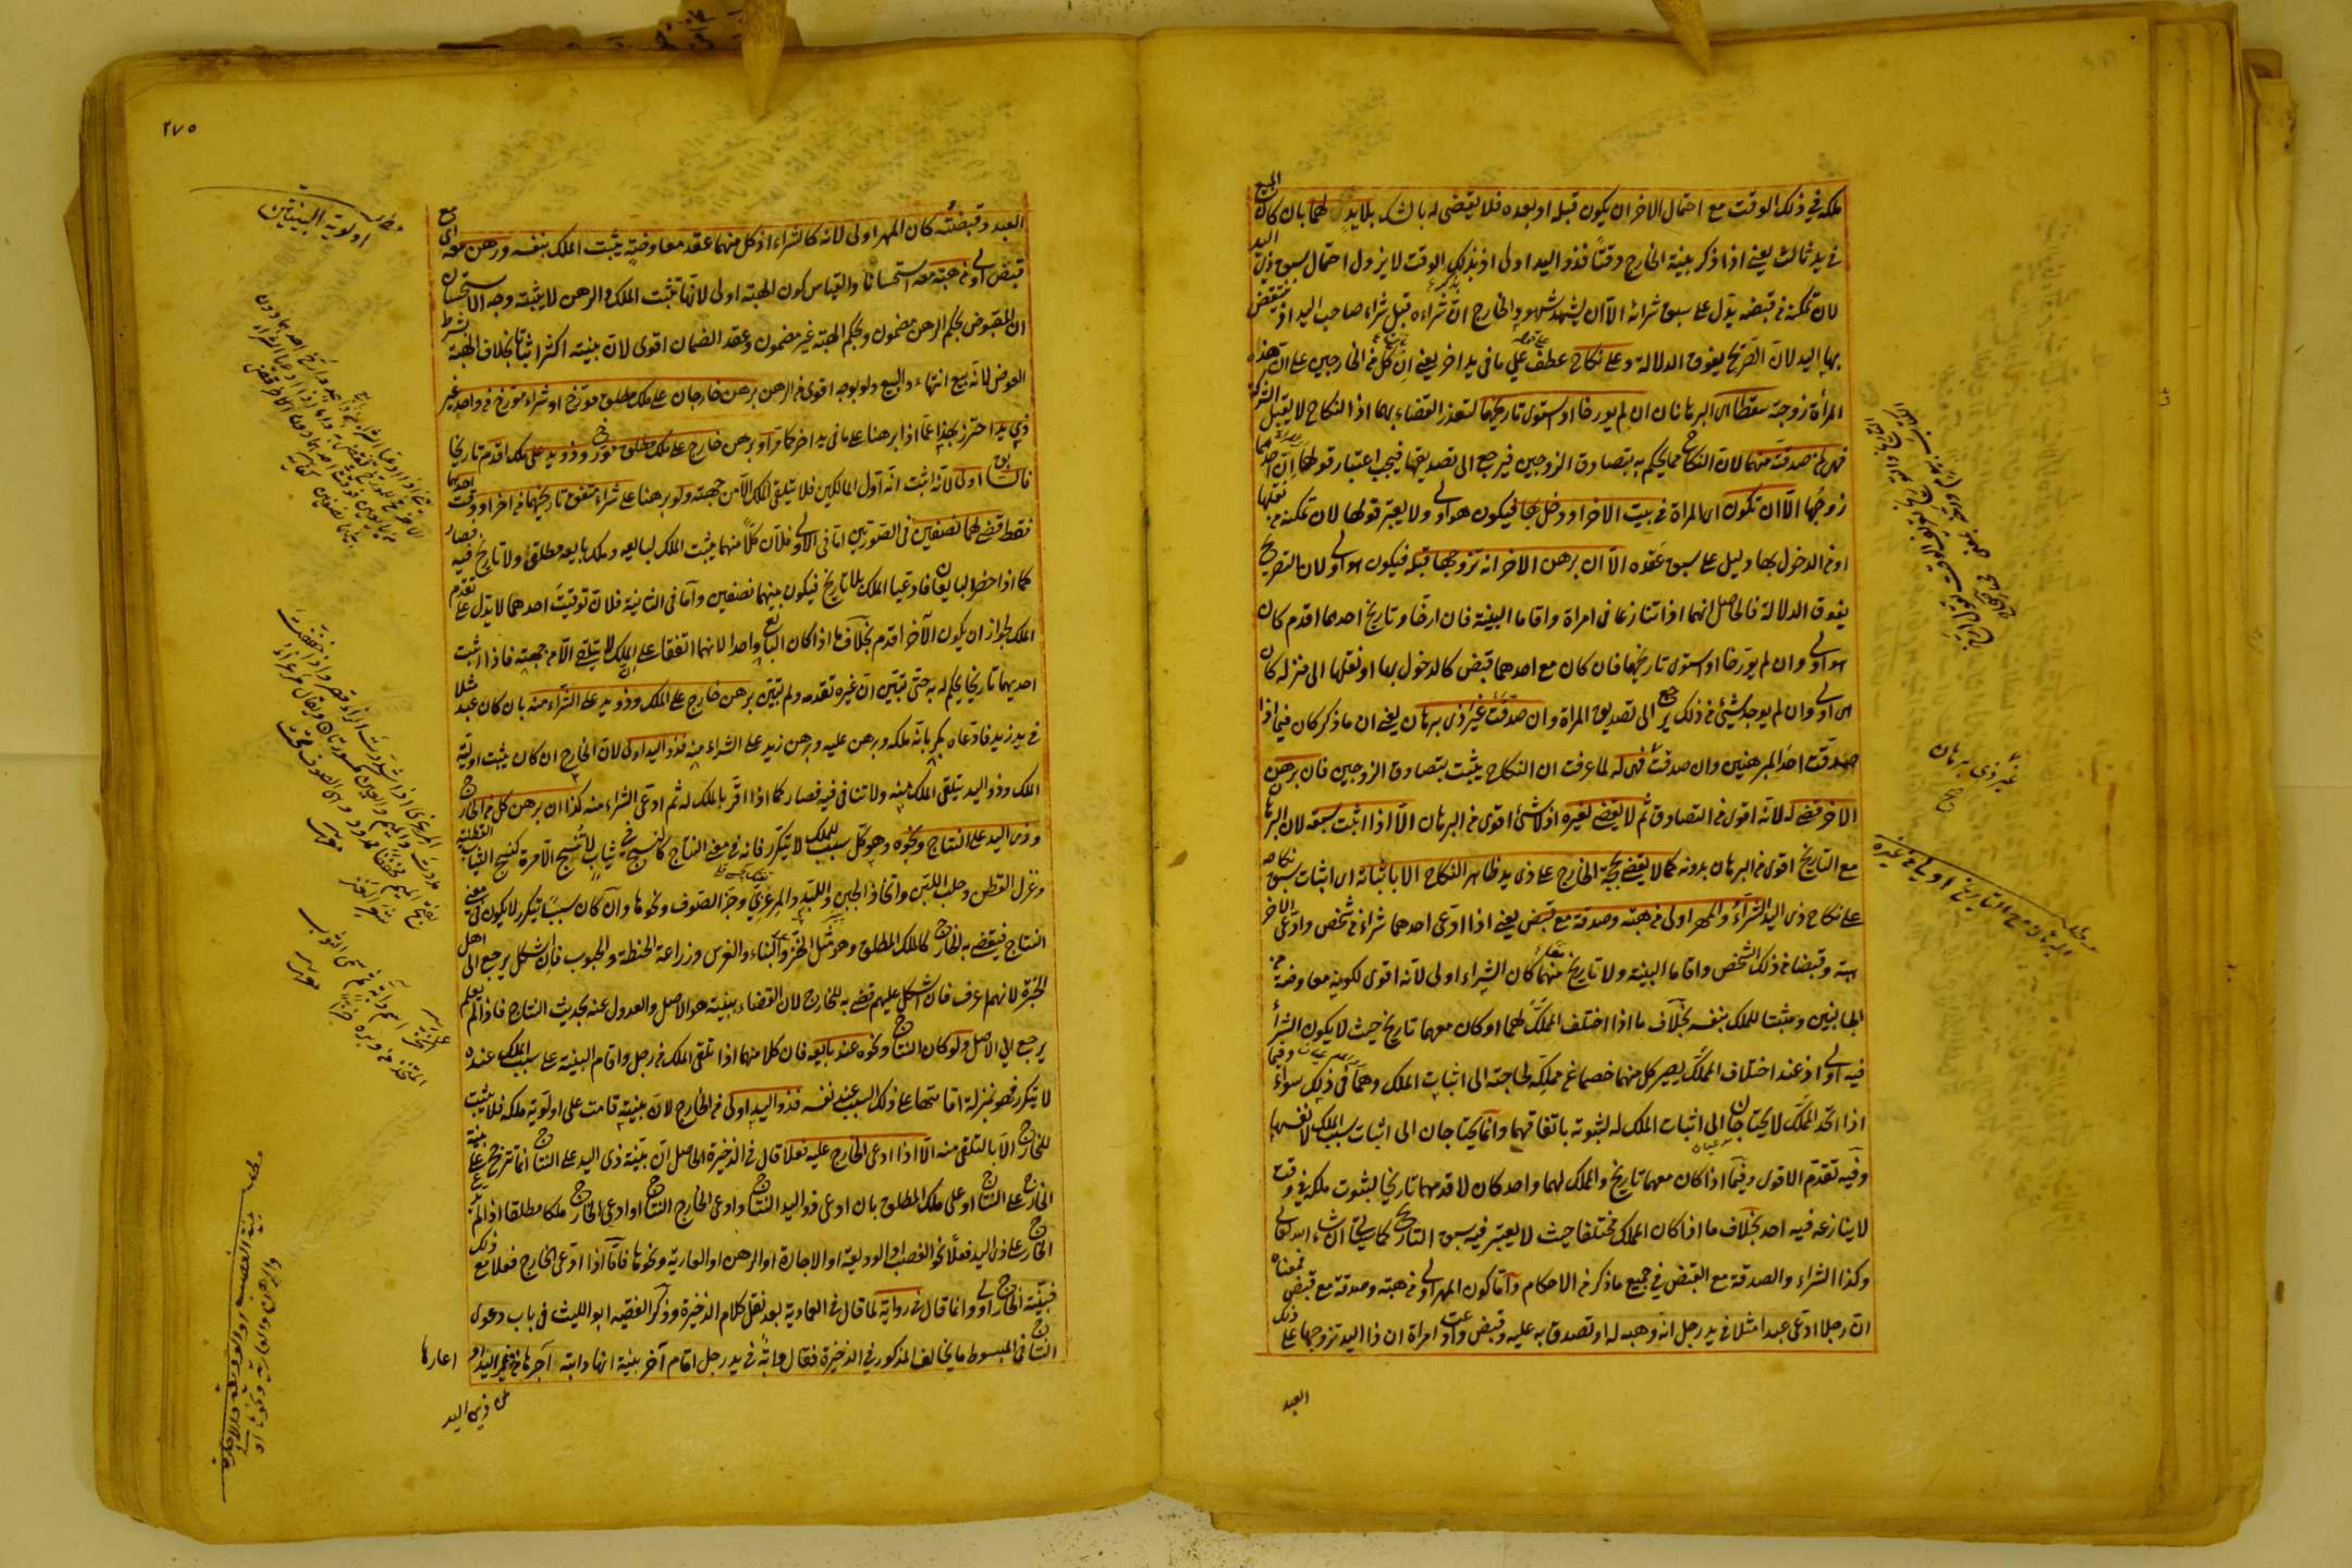 ملكه في ذلك الوقت مع احتمال الاخر ان يكون قبله او بعده فلا يقضى له بالشك بلا يد لهما بان كان المبيع
في يد ثالث يعني اذا ذكر بينة الخارج وقتا فذو اليد اولى اذ بذلك الوقت لا يزول احتمال سبق ذي اليد
لان تمكنه في قبضه يدل على سبق شرائه الا ان يشهد شهود الخارج ان شراءه قبل شراء صاحب اليد اذ ينتقض
بها اليد لان الصريح يفوق الدلالة وعلى نكاح عطف على ما في يد اخر يعني ان كل من الخارجين على ان هذه
المرأة زوجته سقطا اى البرهانان ان لم يورخا او استوى تاريخهما لتعذر القضاء بهما اذ النكاح لا يقبل الشركة
فهى لمن صدقته منهما لان النكاح مما يحكم به بتصادق الزوجين فيرجع الى تصديقها فيجب اعتبار قولها ان احدهما
زوجها الا ان تكون اى المراة في بيت الاخر او دخل بها فيكون هو اولى ولا يعتبر قولها لان تمكنه من نقلها
او من الدخول بها دليل على سبق عقده الا ان برهن الاخر انه تزوجها قبله فيكون هو اولى لان التصريح
يفوق الدلالة فالحاصل انهما اذا تنازعا فى امراة واقاما البينة فان ارخا وتاريخ احدهما اقدم كان
هو اولى وان لم يورخا او استوى تاريخهما فان كان مع احدهما قبض كالدخول بها او نقلها الى منزله كان
هو اولى وان لم يوجد شيئ من ذلك يرجع الى تصديق المراة وان صدقت غير ذى برهان يعنى ان ما ذكر كان فيما اذا
صدقت احد المبرهنين وان صدقت فهى له لما عرفت ان النكاح يثبت بتصادق الزوجين فان برهن
الاخر قضى له لانه اقوى من التصادق ثم لا يقضى لغيره اذ لا شئ اقوى من البرهان الا اذا اثبت سبقه لان البرهان
مع التاريخ اقوى من البرهان بدونه كما لا يقضى بحجة الخارج على ذى يد ظاهر النكاح الا باثباته اى اثبات سبق نكاحه
على نكاح ذى اليد الشراء والمهر اولى من هبة وصدقة مع قبض يعنى اذا ادعى احدهما شراء من شخص وادعى الاخر
هبة وقبضا من ذلك الشخص واقاما البينة ولا تاريخ منهما كان الشراء اولى لانه اقوى لكونه معاوضة من
الجانبين ومثبتا للملك بنفسه بخلاف ما اذا اختلف المملك لهما او كان معهما تاريخ حيث لا يكون الشراء
فيه اولى اذ عند اختلاف المملك يصير كل منهما خصما عن مملكه لحاجته الى اثبات الملك وهما في ذلك سواء وفيما
اذا اتحد المملك لا يحتاجان الى اثبات الملك له لثبوته باتفاقهما وانما يحتاجان الى اثبات سبب الملك لانفسهما
وفيه تقدم الاقوى وفيما اذا كان معهما تاريخ والملك لهما واحد كان لاقدمهما تاريخا لثبوت ملكه في وقت
لا ينازعه فيه احد بخلاف ما اذا كان المملك مختلفا حيث لا يعتبر فيه سبق التاريخ كما سيأتى ان شاء الله تعالى
وكذا الشراء والصدقة مع القبض في جميع ما ذكر من الاحكام واما كون المهر اولى من هبة وصدقة مع قبض فمعناه
ان رجلا ادعى عبدا مثلا في يد رجل انه وهبه له او تصدق به عليه وقبض وادعت امراة ان ذا اليد تزوجها على ذلك
العبد
غير ذى برهان
مطلب
البرهان مع التاريخ اولى من غيره
٢٧٥
العبد وقبضته كان المهر اولى لانه كالشراء اذ كل منهما عقد معاوضة يثبت الملك بنفسه ورهن معه اى مع
قبض اولى من هبة معه استحسانا والقياس كون الهبة اولى لانها تثبت الملك والرهن لا يثبته وجه الاستحسان
ان المقبوض بحكم الرهن مضمون وبحكم الهبة غير مضمون وعقد الضمان اقوى لان بينته اكثر اثباتا بخلاف الهبة بشرط
العوض لانه بيع انتهاء والبيع ولو بوجه اقوى من الرهن برهن خارجان على ملك مطلق مورخ او شراء مورخ من واحد غير
ذي يد احترز بهذا عما اذا برهنا على ما فى يد اخر كما مر او برهن خارج على ملك مطلق مورخ وذو يد على ملك اقدم تاريخا
فالسابق اولى لانه اثبت انه اول المالكين فلا يتلقى الملك الا من جهته ولو برهنا على شراء متفق تاريخهما من اخر او وقت احدهما
فقط قضى لهما نصفين في الصورتين اما فى الاولى فلان كلا منهما يثبت الملك لبايعه وملك بايعه مطلق ولا تاريخ فيه فصار
كما اذا حضر البايعان فادعيا الملك بلا تاريخ فيكون بينهما نصفين واما فى الثانية فلان توقيت احدهما لا يدل على تقدم
الملك لجواز ان يكون الآخر اقدم بخلاف ما اذا كان البائع واحدا لانهما اتفقا على ان الملك لا يتلقى الا من جهته فاذا اثبت
احديهما تاريخا يحكم له به حتى تبين ان غيره تقدمه ولم يتبين برهن خارج على الملك وذو يد على الشراء منه بان كان عبد مثلا
في يد زيد فادعاه بكر بانه ملكه وبرهن عليه وبرهن زيد على الشراء منه فذو اليد اولى لان الخارج ان كان يثبت اولية
الملك وذو اليد يتلقى الملك منه ولا تنافى فيه فصار كما اذا اقر بالملك له ثم ادعى الشراء منه كذا ان برهن كل من الخارج
وذى اليد على النتاج ونحوه وهو كل سبب للملك لا يتكرر فانه في معنى النتاج كالنسج في ثياب لا تنسج الا مرة كنسج الثياب القطنية
وغزل القطن وحلب اللبن واتخاذ الجبن واللبد والمرعزى وجز الصوف ونحوها وان كان سببا يتكرر لا يكون فى معنى
النتاج فيقضى به للخارج كالملك المطلق وهو مثل الخز والبناء والغرس وزراعة الحنطة والحبوب فان اشكل يرجع الى اهل
الخبرة لانهم اعرف فان اشكل عليهم قضى به للخارج لان القضاء ببينته هو الاصل والعدول عنه بحديث النتاج فاذا لم يعلم
يرجع الى الاصل ولو كان النتاج ونحوه عند بايعه فان كلا منهما اذا تلقى الملك من رجل واقام البينة على سبب الملك عنده
لا يتكرر فهو بمنزلة اقامتها على ذلك السبب عند نفسه فذو اليد اولى من الخارج لان بينته قامت على اولوية ملكه فلا يثبت
للخارج الا بالتلقى منه الا اذا ادعى الخارج عليه فعلا قال في الذخيرة الحاصل ان بينة ذى اليد على النتاج انما تترجح على بينة
الخارج على النتاج او على ملك المطلق بان ادعى ذو اليد النتاج وادعى الخارج النتاج او ادعى الخارج ملكا مطلقا اذا لم يدع
الخارج على ذى اليد فعلا نحو الغصب او الوديعة او الاجارة او الرهن او العارية ونحوها فاما اذا ادعى الخارج فعلا مع ذلك
فبينة الخارج اولى وانما قال فى رواية لما قال فى العمادية بعد نقل كلام الذخيرة وذكر الفقيه ابو الليث فى باب دعوى
النتاج فى المبسوط ما يخالف المذكور في الذخيرة فقال دابة في يد رجل اقام آخر بينة انها دابته آجرها من ذى اليد او اعارها
من ذى اليد
مطلب
اولوية البينتين
مطلب
بينة الغصب او الوديعة والاجارة